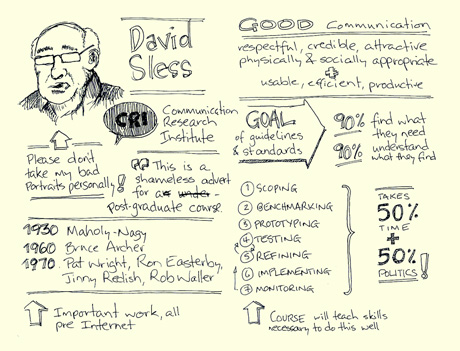 David
Sless
CRI
Communication
Research
Institute
Please don't
take my bad
Portraits personally!
"This is a
shameless advert
for a
post-graduate course.
1930 Maholy-Nagy
1960 Bruce Archer
1970 Pat Wright, Ron Easterby,
Jinny Redish, Rob Waller
Important work, all
pre Internet
GOOD Communication
respectful, credible, attractive
physically & socially appropriate
+
usable, efficient, productive
GOAL
of guidelines
& standards
90% find what
they need
90% understand
what they find
1 SCOPING
2 BENCHMARKING
3 PROTOTYPING
4 TESTING
5 REFINING
6 IMPLEMENTING
7 MONITORING
TAKES
50%
TIME
+
50%
POLITICS!
COURSE will teach skills
necessary to do this well